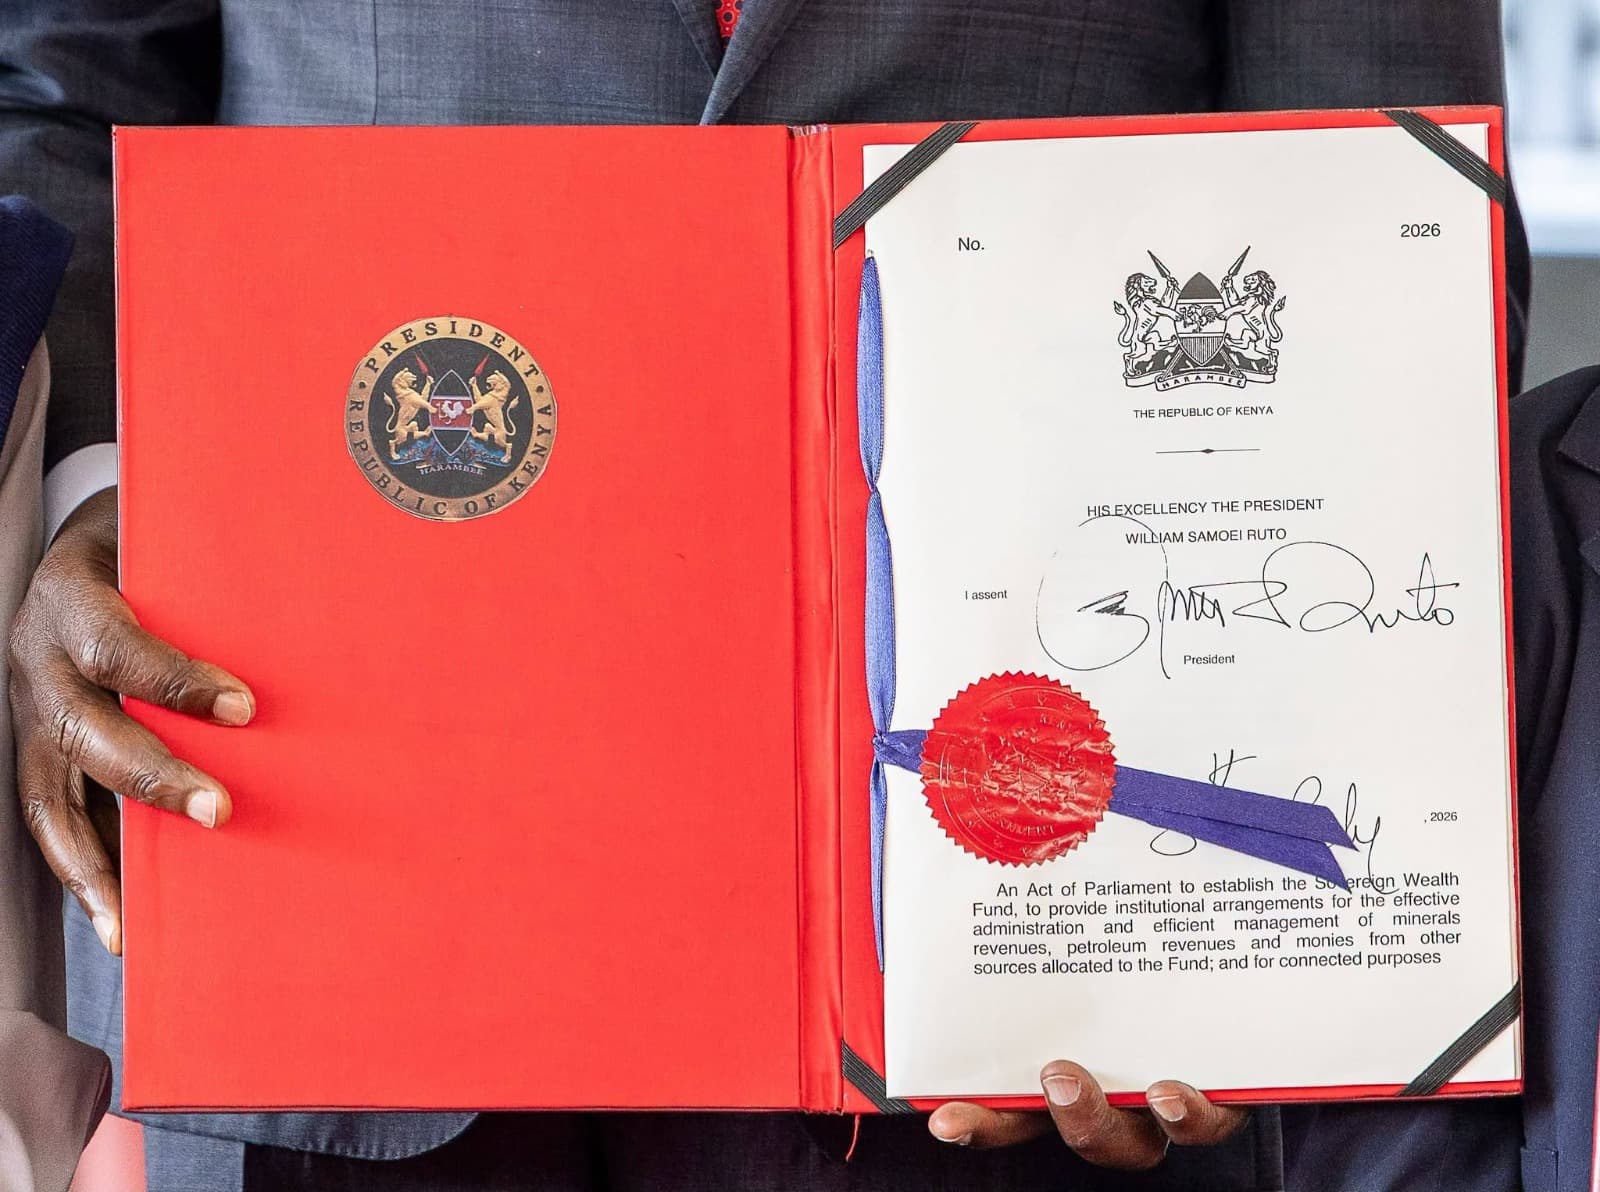 PRESIDENT
REPUBLIC OF KENYA
HARAMBEE
No.
2026
HARAMBEE
THE REPUBLIC OF KENYA
HIS EXCELLENCY THE PRESIDENT
WILLIAM SAMOEI RUTO
I assent
Ruto
President
, 2026
An Act of Parliament to establish the Sovereign Wealth
Fund, to provide institutional arrangements for the effective
administration and efficient management of minerals
revenues, petroleum revenues and monies from other
sources allocated to the Fund; and for connected purposes